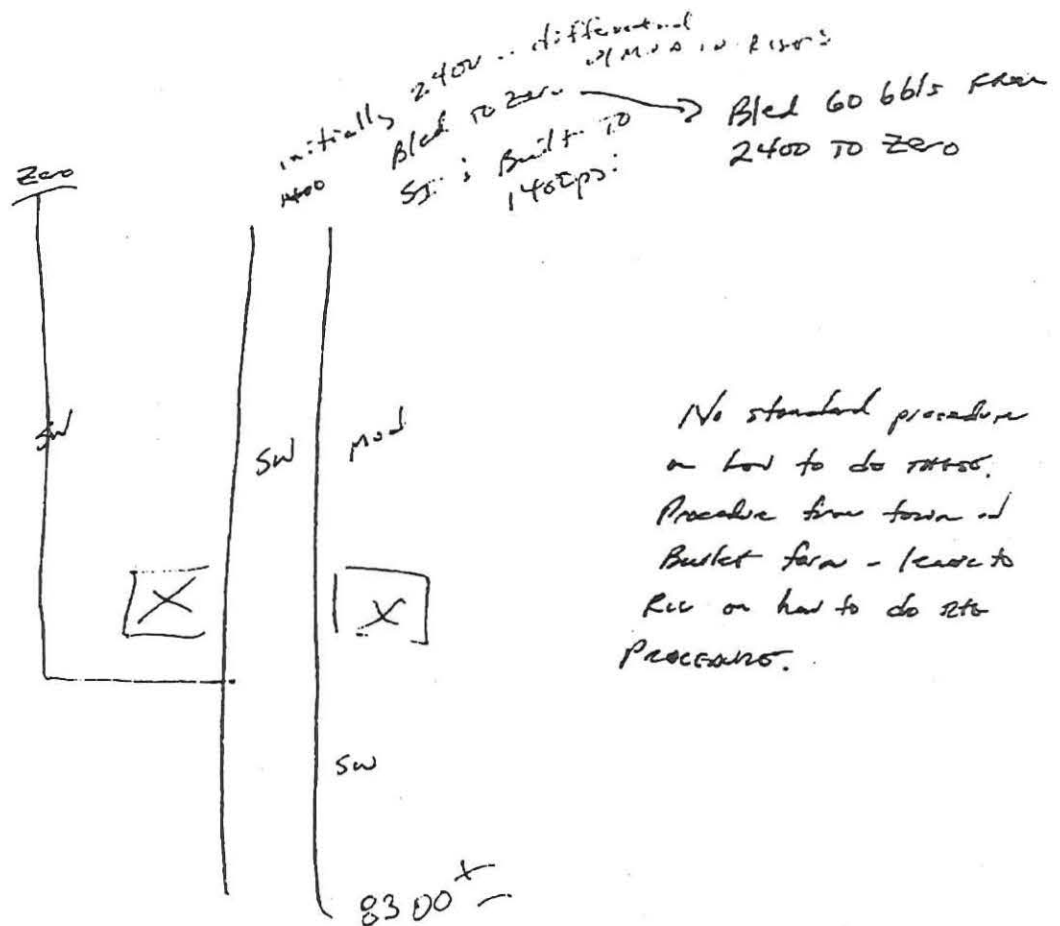 initially 2400 .. differential
w/ Mud in Riser:
1400 Bled To Zero
Bled 60 bbls From
2400 To Zero
SI: Built To
1400psi
Zero
SW
SW
Mud
X
X
SW
8300 ±
No standard procedure
on how to do THESE.
Procedure from town
Bullet form - leave to
Rig on how to do
PROCEDURE.